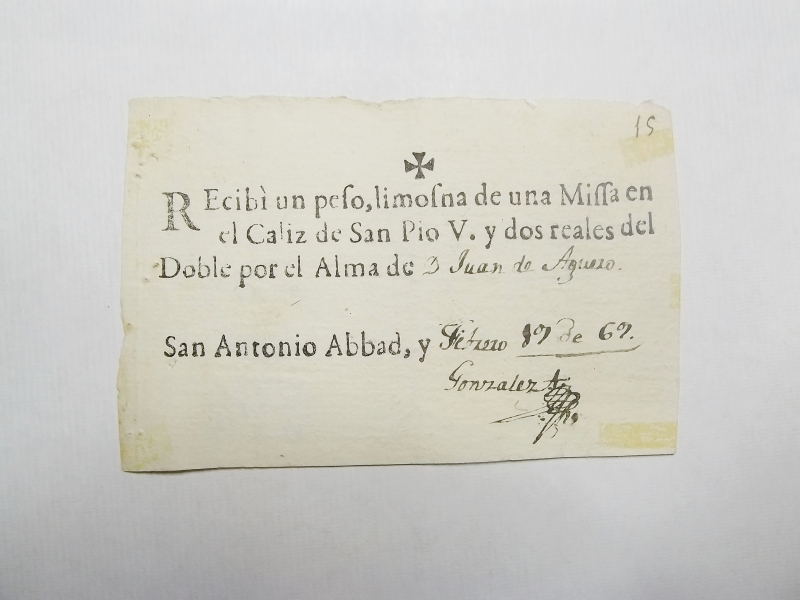 15
✠
REcibì un peſo, limoſna de una Miſſa en
el Caliz de San Pio V. y dos reales del
Doble por el Alma de D Juan de Aguero.
San Antonio Abbad, y Febrero 19 de 69.
Gonzalez